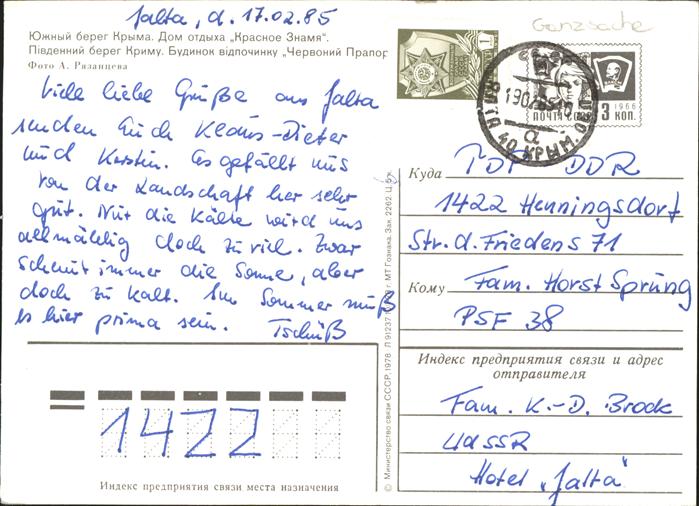 Jalta, d. 17.02.85
Ganzsache
Южный берег Крыма. Дом отдыха „Красное Знамя“.
Південний берег Криму. Будинок відпочинку „Червоний Прапор
Фото А. Рязанцева
Viele liebe Grüße aus Jalta
senden Euch Klaus-Dieter
und Kerstin. Es gefällt uns
von der Landschaft her sehr
gut. Nur die Kälte wird uns
allmählig doch zu viel. Zwar
scheint immer die Sonne, aber
doch zu kalt. Im Sommer muß
es hier prima sein. Tschüß
1
ПОЧТА СССР
1966
3 КОП.
ЯЛТА 40 КРЫМ. ОБЛ.
а
Куда ГДР DDR
1422 Henningsdorf
Str. d. Friedens 71
Кому Fam. Horst Sprung
PSF 38
Индекс предприятия связи и адрес
отправителя
Fam. K.-D. Brock
UdSSR
Hotel „Jalta“
1422
Индекс предприятия связи места назначения
© Министерство связи СССР. 1978
МТ Гознака. Зак. 2262. Ц. 5 к.